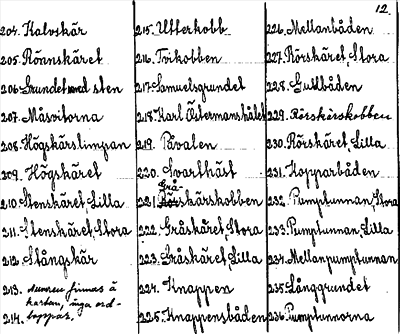 12.
204. Kalvskär
205. Rönnskäret
206. Grundet med sten
207. Måsvitorna
208. Högskärslimpan
209. Högskäret
210. Stenskäret, Lilla
211. Stenskäret, Stora
212. Stångskär
213. numren finnas å
kartan, inga ord-
214. lappar.
215. Utterkobb
216. Tvikobben
217. Samuelsgrundet
218. Karl Östermanshålet
219. Påvalen
220. Svarthäst
Grå-
221. skärskobben
222. Gråskäret, Stora
223. Gråskäret, Lilla
224. Knappen
225. Knappensbåden
226. Mellanbåden
227. Rörskäret, Stora
228. Gullbåden
229. Rörskärskobben
230. Rörskäret, Lilla
231. Kopparbåden
232. Pumptunnan, Stora
233. Pumptunnan, Lilla
234. Mellanpumptunnan
235. Långgrundet
236. Pumptunnorna